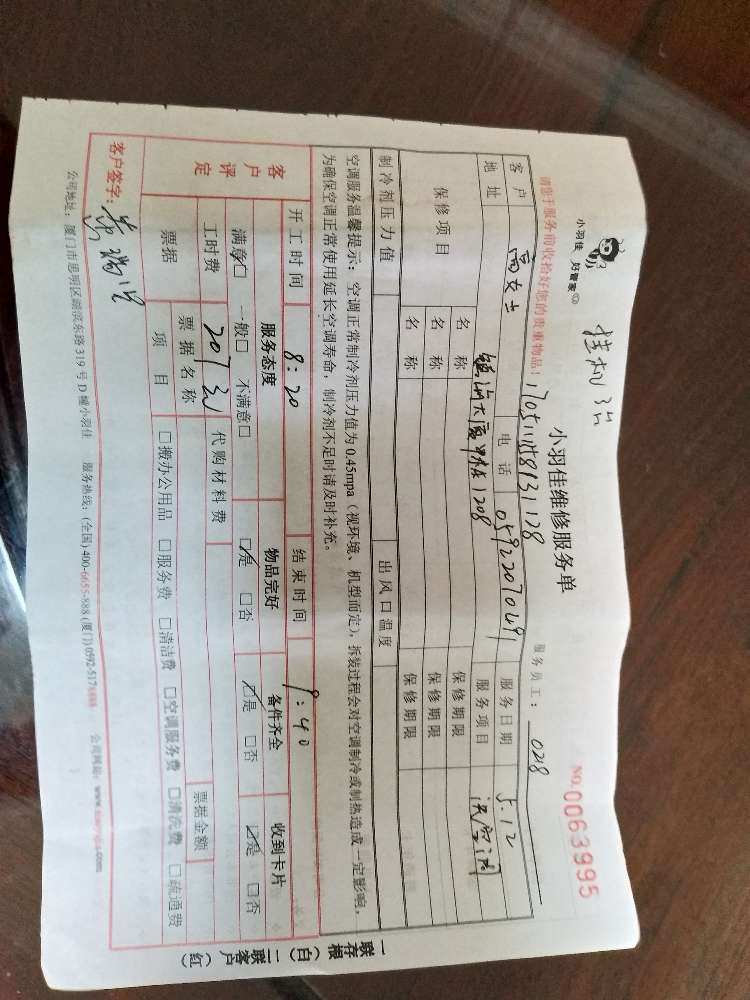 挂机3台
小羽佳 好管家
小羽佳维修服务单
服务员工: 0218
NO.0063995
请您于服务前收拾好您的贵重物品!
客户 高女士 电话 05922070491 服务日期 5.12
地址 镇海大厦甲栋1208 服务项目 洗空调
保修项目 名称 保修期限
名称 保修期限
名称 保修期限
制冷剂压力值 出风口温度
空调服务温馨提示:空调正常制冷剂压力值为0.45mpa(视环境、机型而定),拆装过程会对空调制冷或制热造成一定影响,
为确保空调正常使用延长空调寿命,制冷剂不足时请及时补充。
开工时间 8:20 结束时间 9:40
客户评定 服务态度 物品完好 备件齐全 收到卡片
满意□ 一般□ 不满意□ □是 □否 □是 □否 □是 □否
工时费 207元 代购材料费
票据 票据名称 票据金额
项目 □搬办公用品 □服务费 □清洁费 □空调服务费 □清洗费 □疏通费
客户签字:
公司地址:厦门市思明区湖滨东路319号D幢小羽佳 服务热线:(全国)400-6655-888 (厦门)0592-5178888 公司网站:
一联存根(白) 二联客户(红)